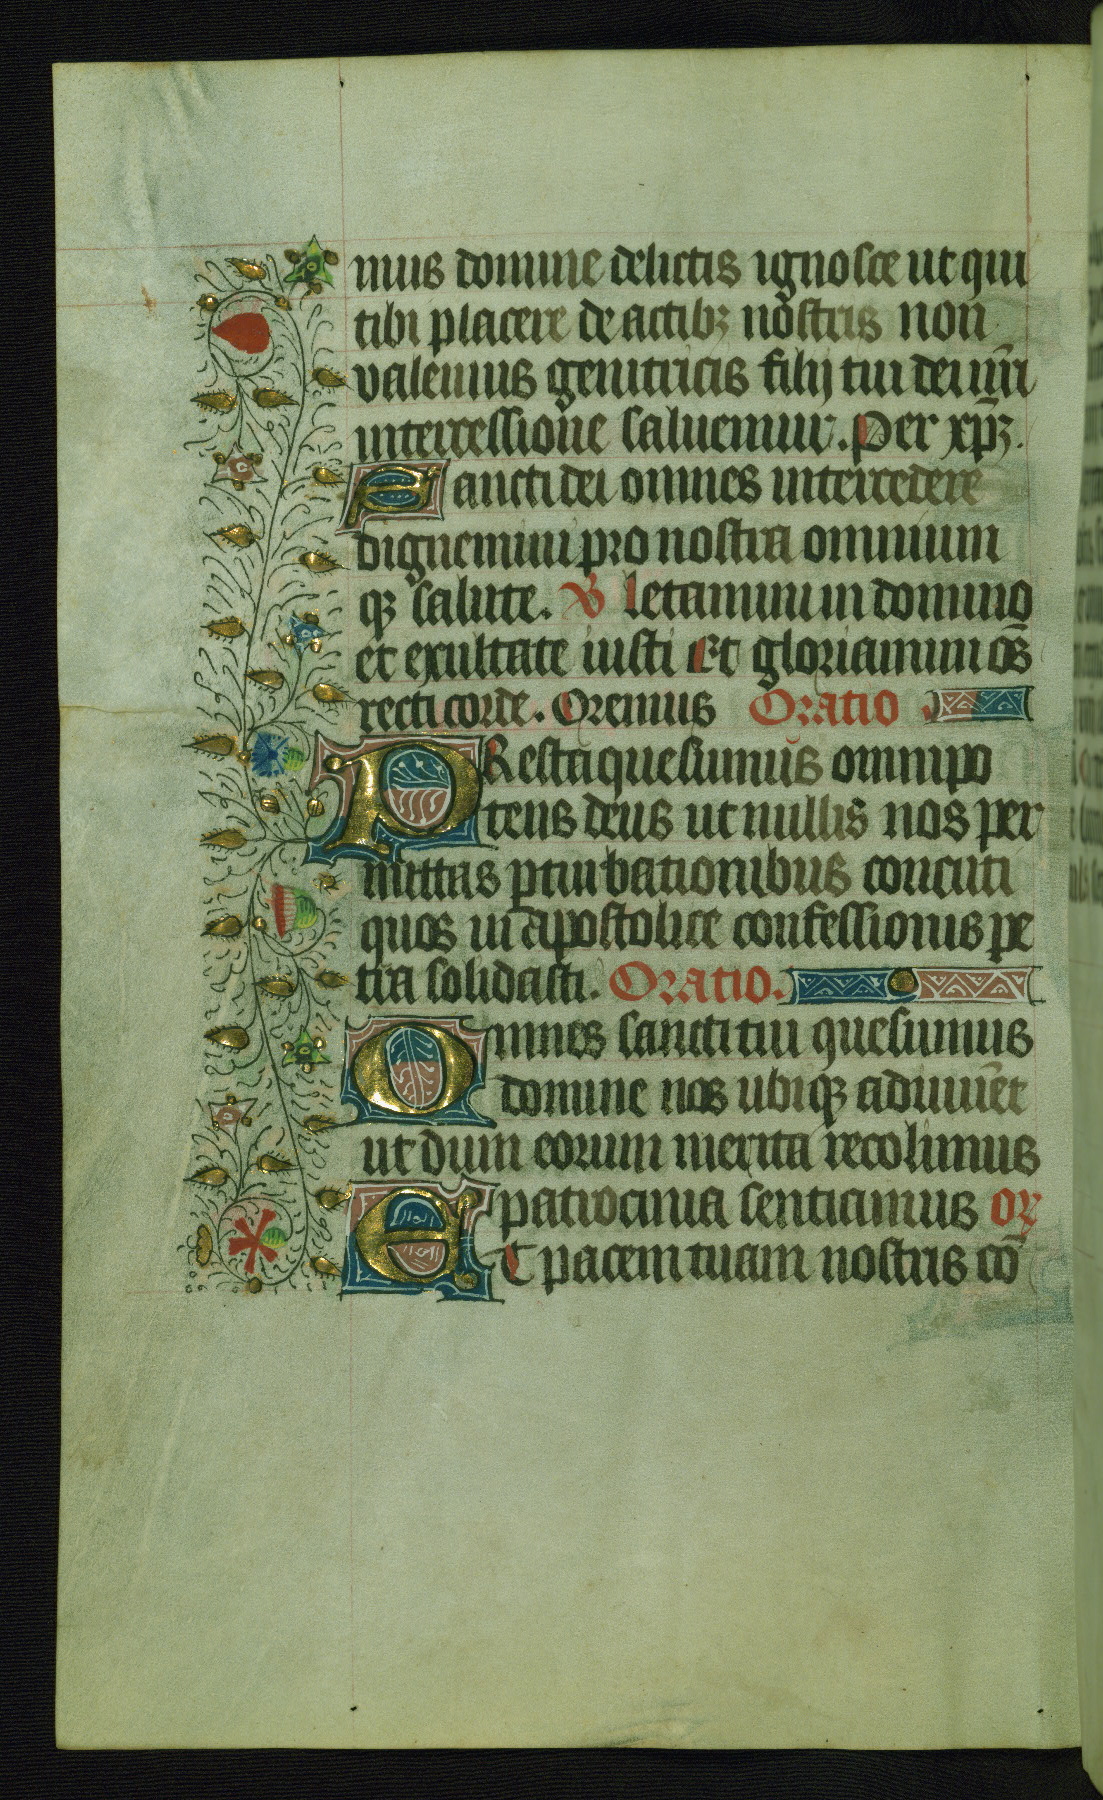 mus domine delictis ignosce ut qui
tibi placere de actibꝫ nostris non
valemus genitricis filij tui dei nr̄i
intercessione saluemur. Per xp̄ꝫ.
Sancti dei omnes intercedere
dignemini pro nostra omnium
qꝫ salute. V̄ letamini in domino
et exultate iusti Et gloriamini om̄s
recti corde. Oremus Oratio
PResta quesumus omnipo
tens deus ut nullis nos per
mittas ꝑturbationibus concuti
quos in apostolice confessionis pe
tra solidasti. Oratio.
Omnes sancti tui quesumus
domine nos ubiqꝫ adiuuēt
ut dum eorum merita recolimus
patrocinia senciamus or
ET pacem tuam nostris cō